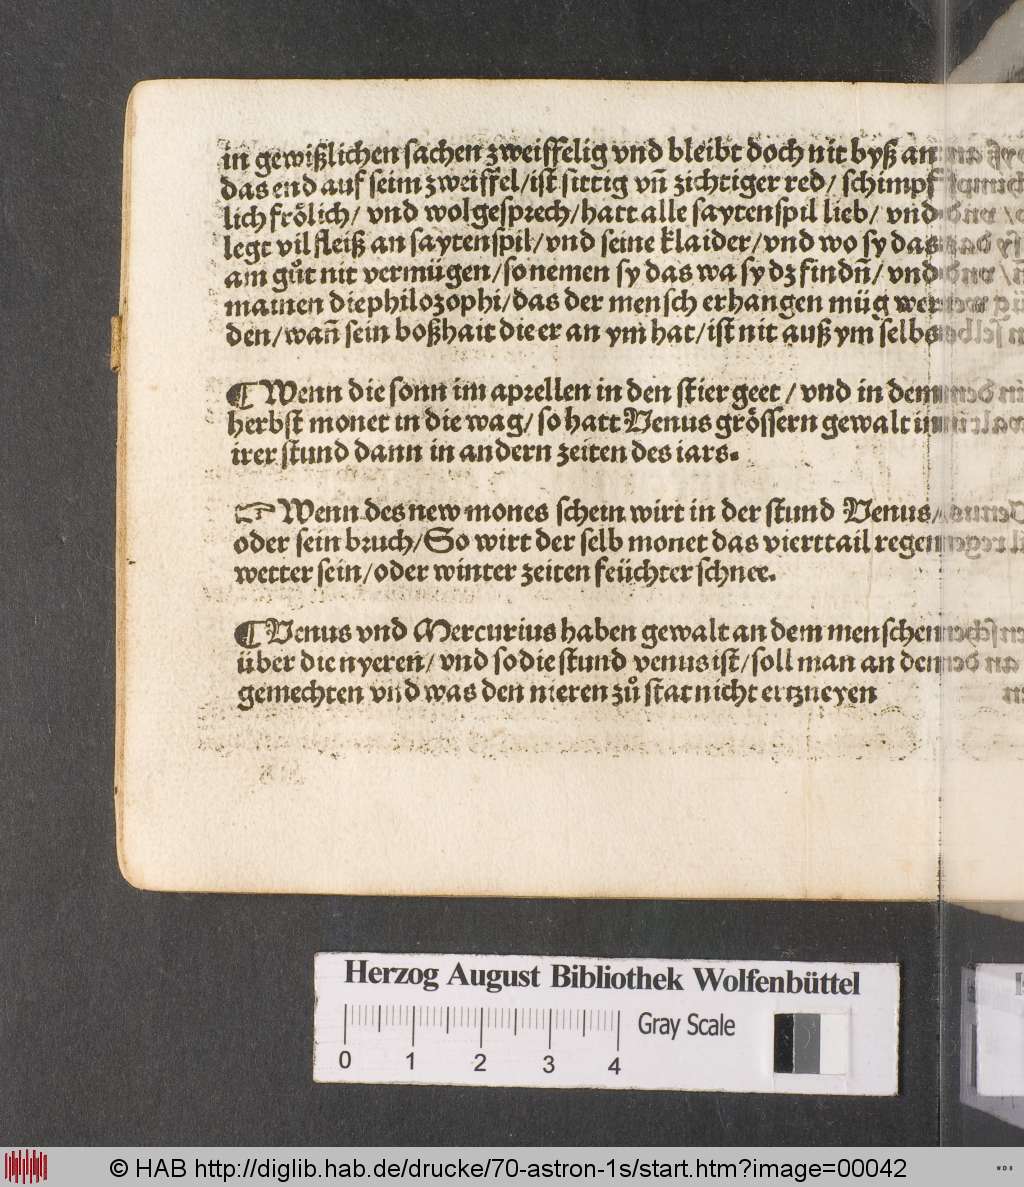 in gewißlichen sachen zweiffelig vnd bleibt doch nit byß an
das end auf seim zweiffel/ist sittig vñ zichtiger red/ schimpf
lich froͤlich/ vnd wolgesprech/hatt alle saytenspil lieb/ vnd
legt vil fleiß an saytenspil/vnd seine klaider/vnd wo sy das
am guͦt nit vermügen/so nemen sy das wa sy dz findñ/ vnd
mainen die philozophi/das der mensch erhangen müg wer
den/wañ sein boßhait die er an ym hat/ist nit auß ym selbs
¶ Wenn die sonn im aprellen in den stier geet / vnd in dem
herbst monet in die wag/ so hatt Venus groͤssern gewalt in
irer stund dann in andern zeiten des iars.
☞ Wenn des new mones schein wirt in der stund Venus/
oder sein bruch/So wirt der selb monet das vierttail regen
wetter sein/oder winter zeiten feüchter schnee.
¶ Venus vnd Mercurius haben gewalt an dem menschen
über die nyeren/ vnd so die stund venus ist/soll man an den
gemechten vnd was den nieren zuͦ stat nicht ertzneyen
Herzog August Bibliothek Wolfenbüttel
0 1 2 3 4 Gray Scale
© HAB http://diglib.hab.de/drucke/70-astron-1s/start.htm?image=00042